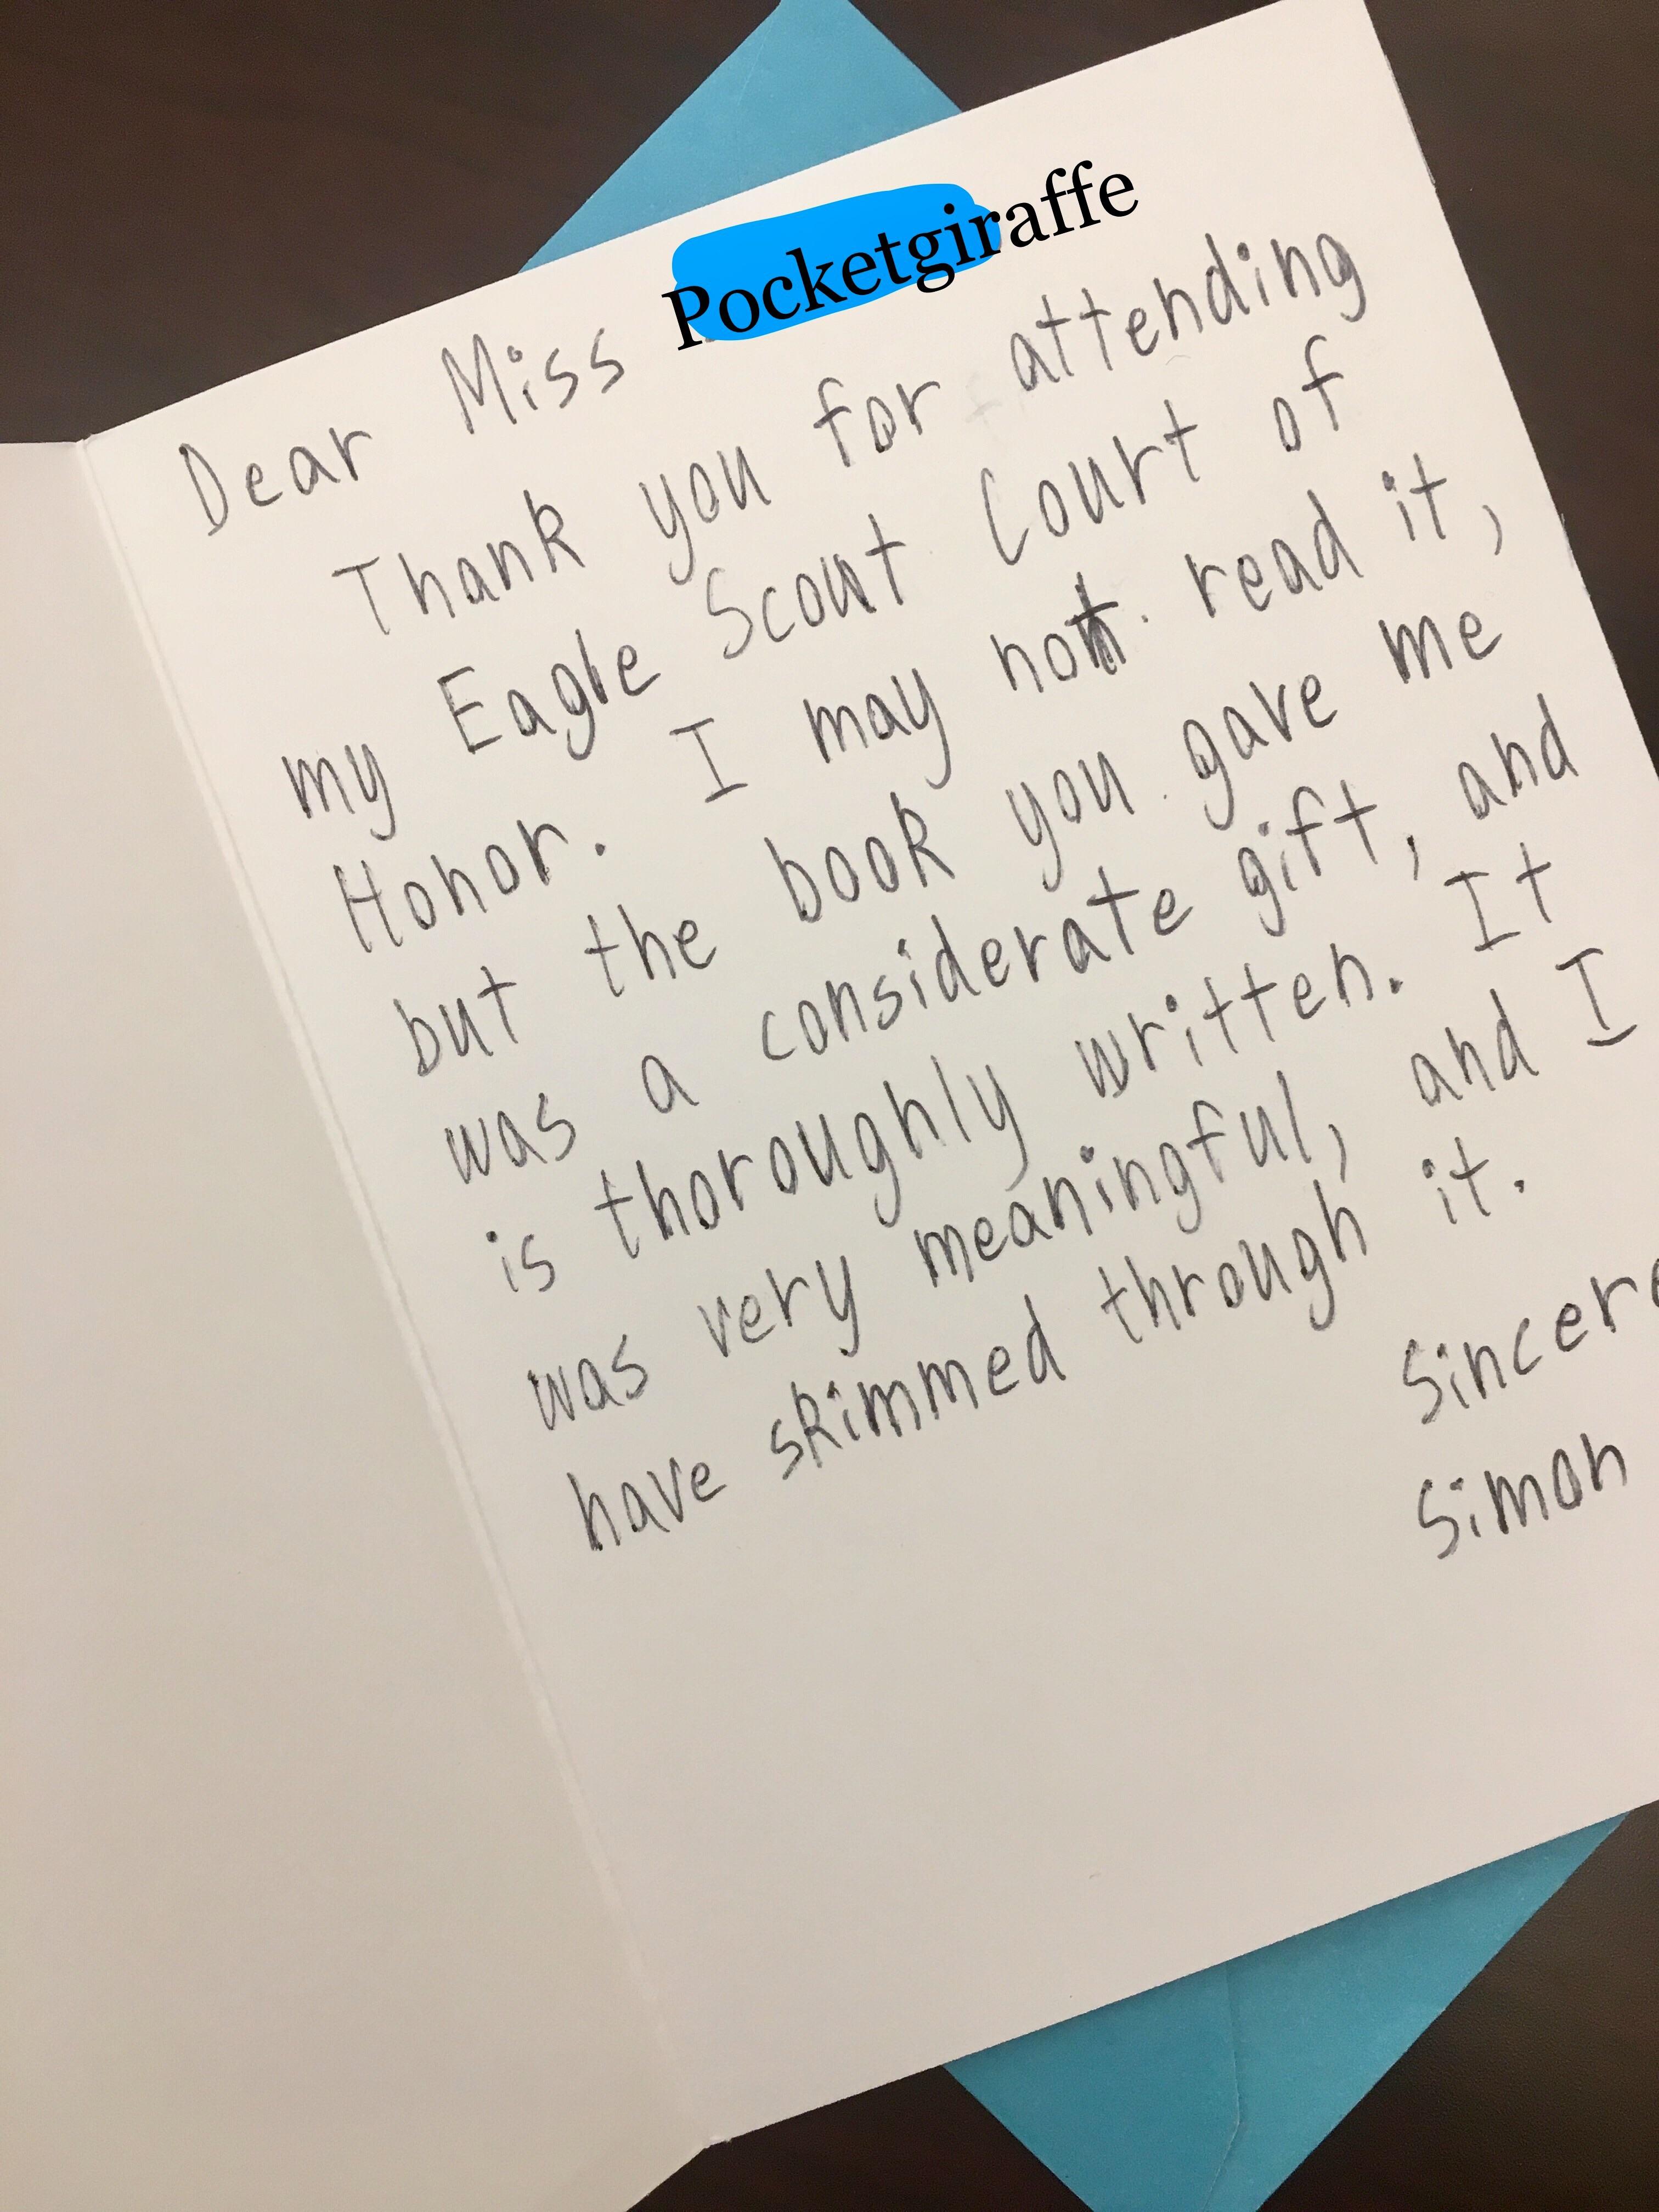 Dear Miss Pocketgiraffe
Thank you for attending
my Eagle Scout Court of
Honor. I may not read it,
but the book you gave me
was a considerate gift, and
is thoroughly written. It
was very meaningful, and I
have skimmed through it.
Sincere
Simon